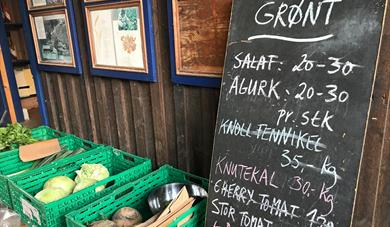 GRØNT
SALAT: 20-30
AGURK: 20-30
pr. stk
KNOLL FENNIKEL
35,- kg
KNUTEKÅL 30,-KG
CHERRY TOMAT
STOR TOMAT